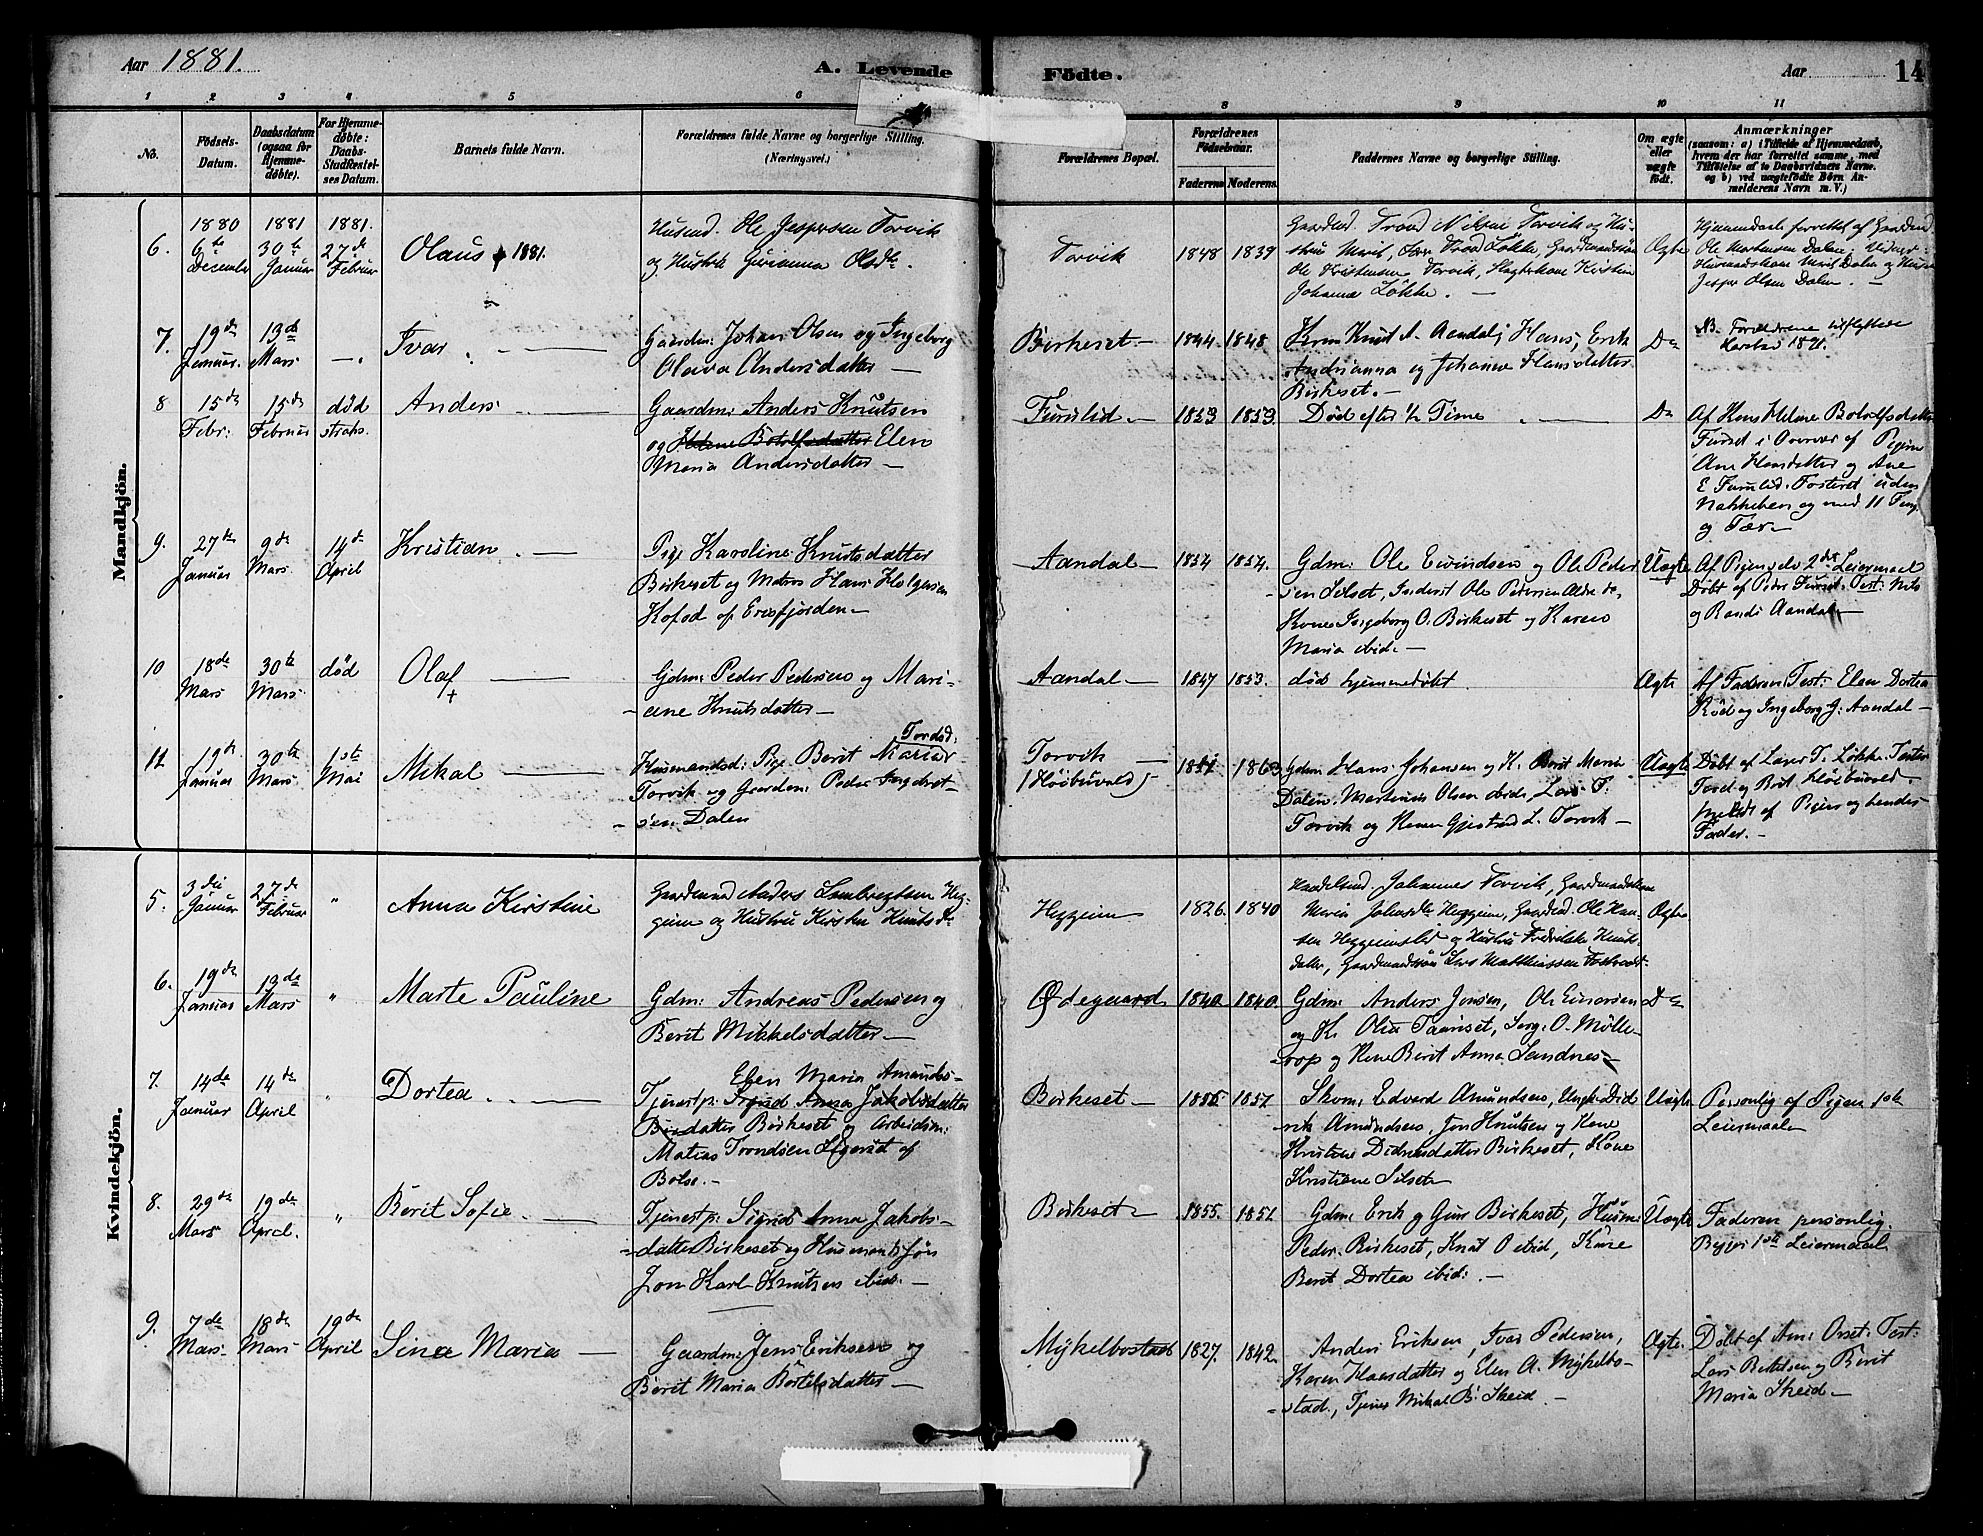 Aar 1881.
A. Levende
Födte.
Aar
14
1 2 3 4 5 6 8 9 10 11
No.
Födsels-
Datum.
Daabsdatum
(ogsaa for
Hjemme-
døbte).
For Hjemme-
døbte:
Daabs-
Stadfæstel-
ses Datum.
Barnets fulde Navn.
Forældrenes fulde Navne og borgerlige Stilling.
(Næringsvei.)
Forældrenes Bopæl.
Forældrenes
Födselsaar.
Faderens Moderens
Faddernes Navne og borgerlige Stilling.
Om ægte
eller
uægte
født.
Anmærkninger
(saasom: a) i Tilfælde af Hjemmedaab,
hvem der har forrettet samme, med
Tilføielse af to Daabsvidners Navne,
og b) ved uægtefødte Børn An-
melderens Navn m. V.)
Mandkjön.
6.
1880
6te
December
1881
30te
Januar
1881.
27de
Februar
Olaus + 1881.
Husmd. Ole Jespersen Torvik
og Hustru Gurianna Olsdtr.
Torvik
1848 1839
Gaardmd. Trond Nilsen Torvik og Hu-
stru Marit, Lars Trond Løkke, Gaardmandssøn
Ole Kristensen Torvik,
Johanne Løkke. —
Ægte
Hjemmedaab forrettet af Gaardmd.
Ole Mortensen Dalen. Vidner:
Husmandskone Marit Dalen og Husm
Jesper Olsen Dalen. —
7.
19de
Januar.
13de
Mars
—
Ivar
Gaardm: Johan Olsen og Ingeborg
Olava Andersdatter —
Birkeset
1844. 1848
Knut A. Aandal, Hans, Erik
Andrianna og Johanne Hansdatter
Birkeset. —
Do
NB. Forældrene udflyttede
8
15de
Febr:
15de
Februar
død
straks.
Anders
Gaardm: Anders Knutsen
og Helene Botolfsdatter Elen
Maria Andersdatter —
Furulid
1853 1853.
Død efter ½ Time
Do
Af Kone Helene Botolfsdatter
i Overvær af Pigen
Ane Hansdatter og Ane
E Furulid. Fosteret uden
Nakkeben og med 11 Fing
og Tær
9.
27de
Januar
9de
Mars.
14de
April
Kristian
Pige Karoline Knutsdatter
Birkeset og Matros Hans Holgersen
Kofod af Eresfjorden —
Aandal
1854 1854.
Gdm: Ole Eivindsen og Ole Peder
sen Silset, Inderst Ole Pedersen
Kone Ingeborg O. Birkeset og Karen
Maria ibid. —
Uægte
Af Pigen selv 2det Leiermaal
Døbt af Peder Furset. Test: Nils
og Randi Aandal
10
18de
Mars
30te
Mars.
død
Olaf
+
Gdm: Peder Pedersen og Mari-
ane Knutsdatter —
Aandal
1847 1853.
død hjemmedøbt
Ægte
Af Faderen Test: Elen Dortea
Rød og Ingeborg G. Aandal —
11
19de
Januar
30te
Mars.
1ste
Mai
Mikal
Tordsd:
Husmandsd: Pige Berit Maria
Torvik og Gaardm: Peder Ingebrigt-
sen Dalen
Torvik
(Høibuvald)
1851 1863
Gdm: Hans Johansen og K. Berit Maria
Dalen. Martinus Olsen ibid, Lars T.
Torvik og Kone Gjertrud L. Torvik —
Uægte
Døbt af Lars T. Løkke. Test:
Tord og Brit Høibuvald
Anmeldt af Pigen og hendes
Fader. —
Kvindekjön.
5.
3die
Januar
27de
Februar
"
Anna Kirstine
Gaardmand Anders Lambregtsen Heg-
geim og Hustru Kirsten Knutsdtr
Heggeim
1826. 1840
Johannes Torvik, Gaardmandskone
Maria Heggeim, Gaardmd. Ole Han-
sen Heggeimslid og Hustru Fredrikke Knuds-
datter, Gaardmandssøn Lars Matthiassen
Ægte
6.
19de
Januar
13de
Mars
"
Marte Pauline
Gdm: Andreas Pedersen og
Berit Mikkelsdatter —
Ødegaard
1840 1840.
Gdm: Anders Jensen, Ole Einarsen
og K. Olia Taunset, Serg: O. Mölle-
rop og Kone Berit Anna Sandnes
Do
7.
14de
Januar
14de
April
"
Dortea
Elen Maria Amunds-
Tjenestp: Sigrid Anna Jakobsdatter
datter Birkeset og Arbeidsm:
Matias Trondsen af
Bolsø. —
Birkeset
1855 1857
Skom: Edvard Amundsen, Ungk: Did
rik Amundsen, Jon Knutsen og Kone
Kristine Didriksdatter Birkeset, Kone
Kristiane Silset
Uægte
Personlig af Pigen 1ste
Leiermaal
8.
29de
Mars
19de
April.
"
Berit Sofie
Tjenestp: Sigrid Anna Jakobs-
datter Birkeset og Husmandssøn
Jon Karl Knutsen ibid. —
Birkeset
1855. 1851
Gdm: Erik og Guri Birkeset, Husm:
Peder Birkeset, Knut P ibid, Kone
Berit Dortea ibid: —
Uægte
Faderen personlig.
Begges 1ste Leiermaal
9.
7de
Mars
18de
Mars
19de
April
Sina Maria
Gaardm: Jens Eriksen og
Berit Maria Bertelsdatter —
Mykelbostad
1827. 1842.
Anders Eriksen, Ivar Pedersen,
Karen Hansdatter og Elen A. Mykelbo-
stad., Tjener Mikal B. Skeid. —
Ægte.
Døbt af Am: Orset. Test:
Lars Bertelsen og Berit
Maria Skeid —